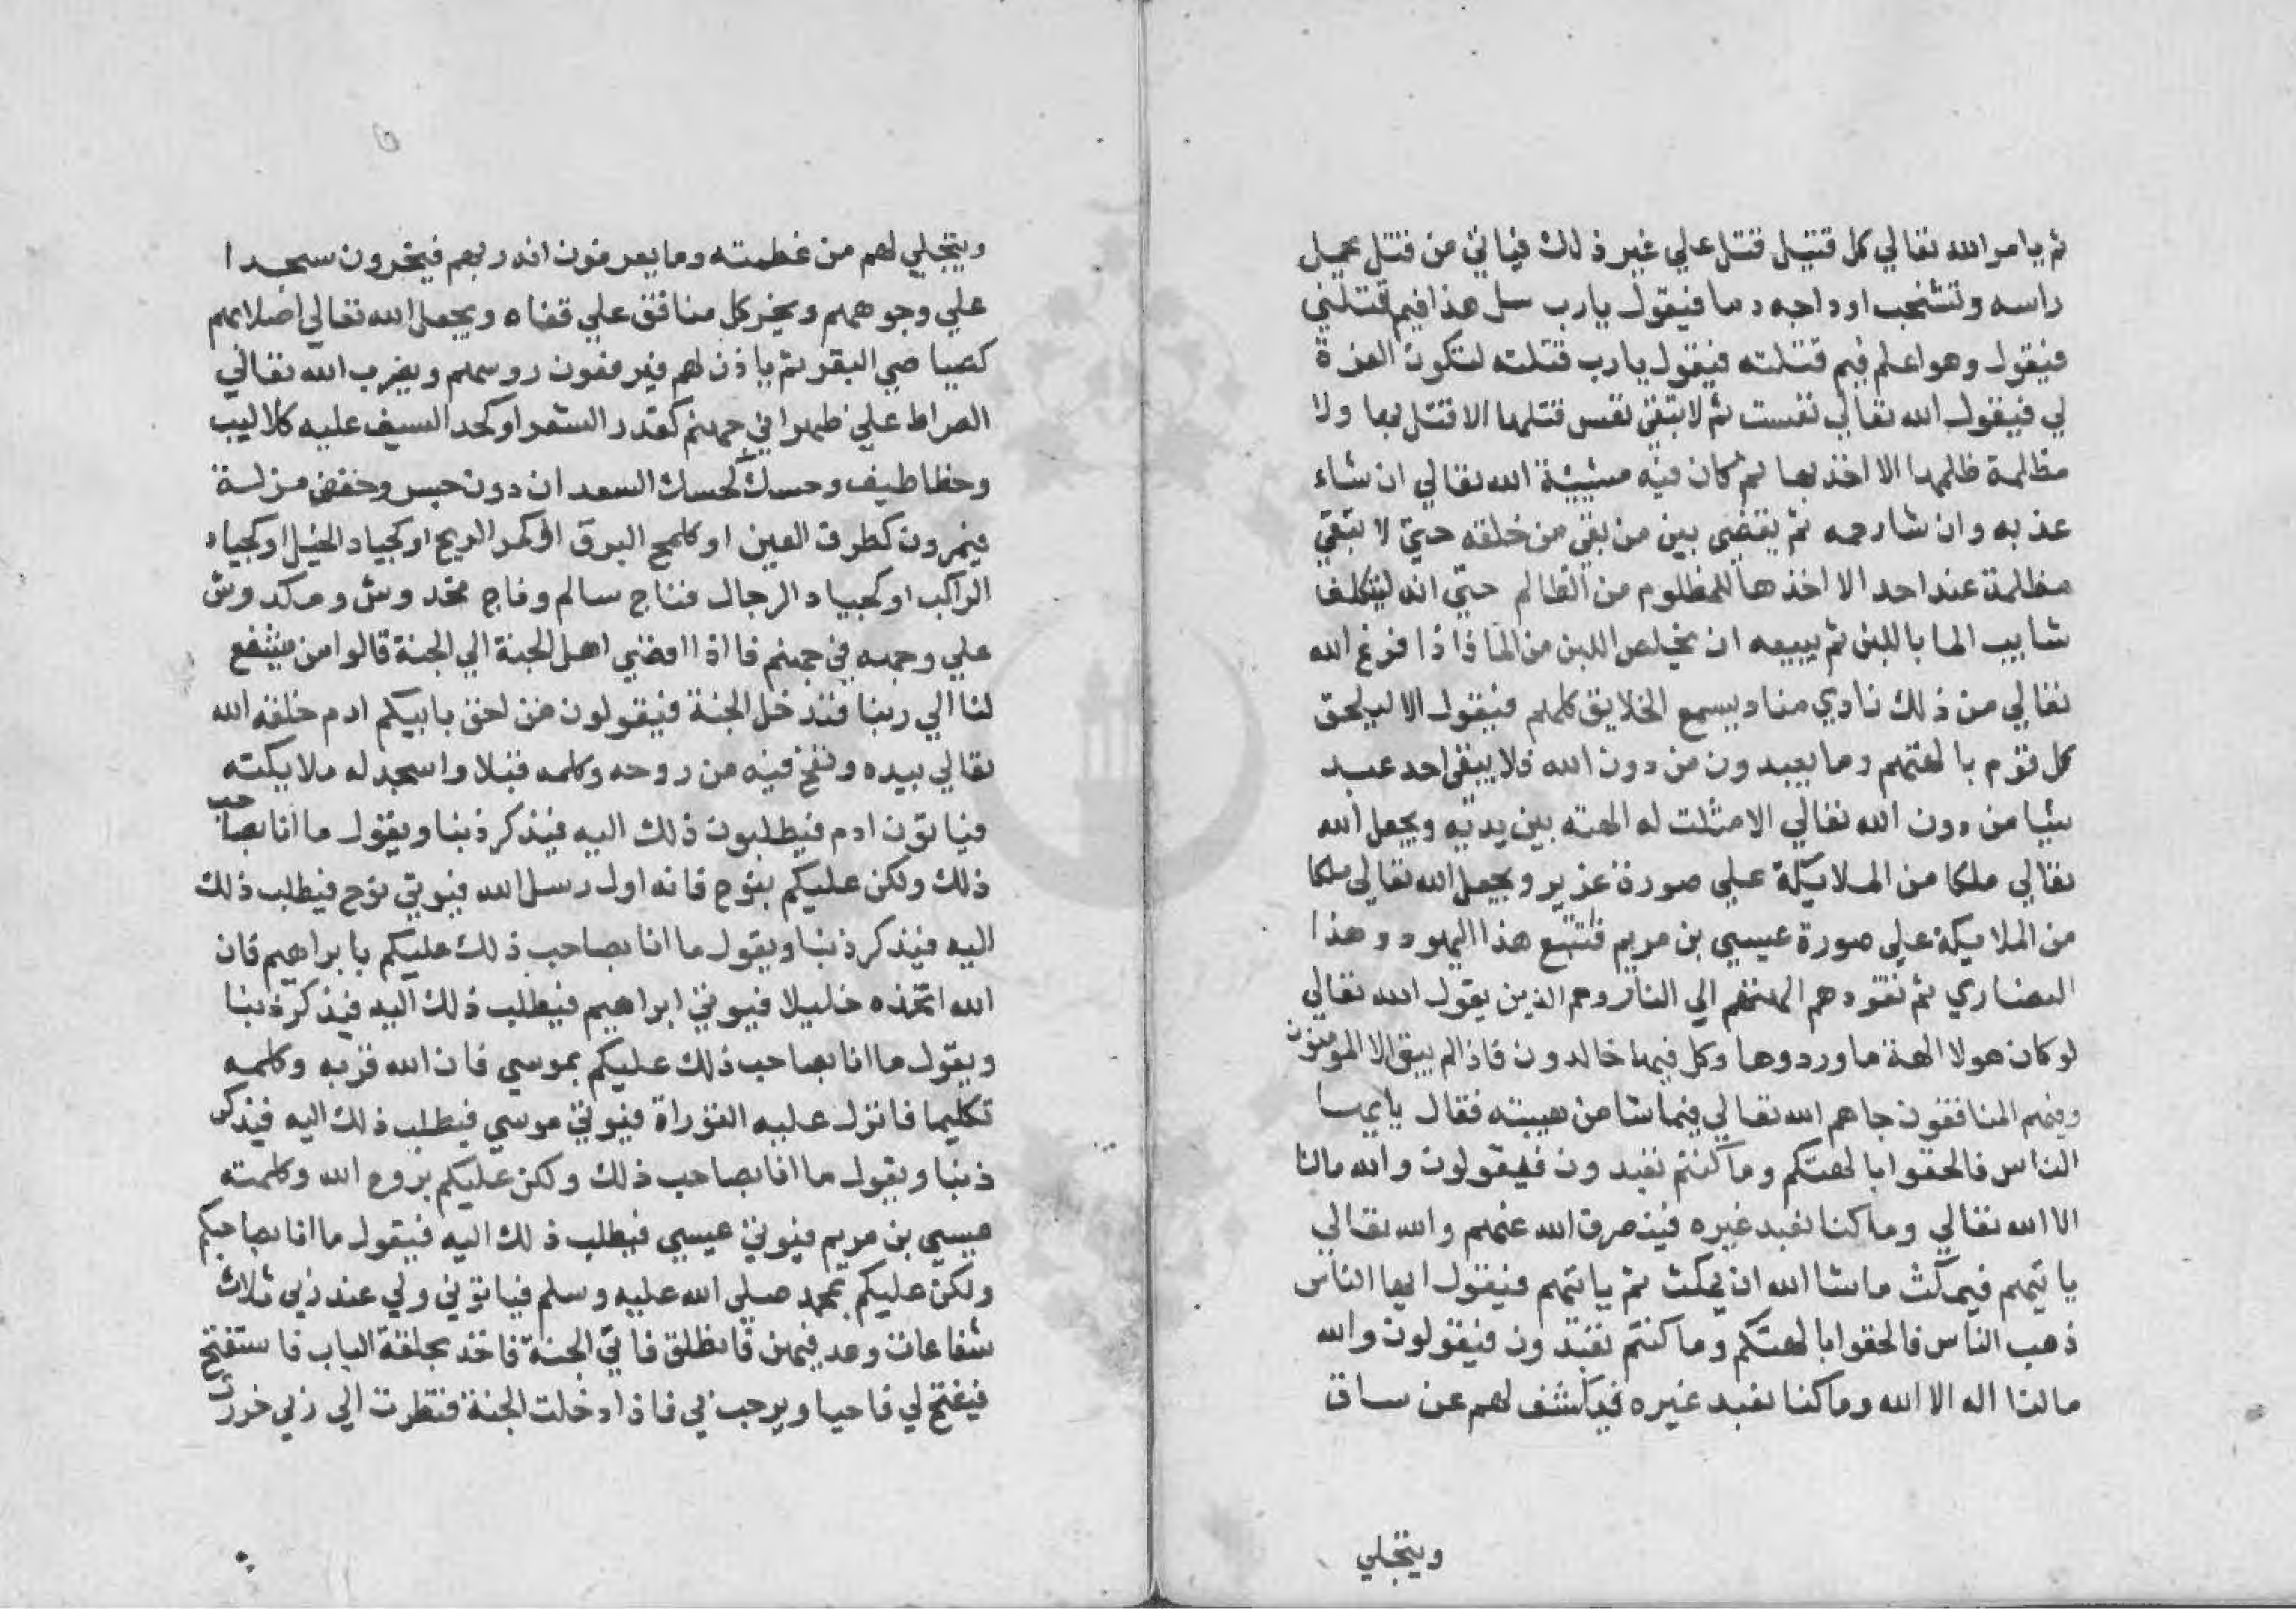 ثم يامر الله تعالي كل قتيل قتل علي غير ذلك فياتي من قتل يحمل
راسه وتشخب اوداجه دما فيقول يارب سل هذا فيم قتلني
فيقول وهو اعلم فيم قتلته فيقول يارب قتلته لتكون العزة
لي فيقول الله تعالي تعست ثم لا تبقي نفس قتلها الا قتل بها ولا
مظلمة ظلمها الا اخذ بها ثم كان فيه مشيئة الله تعالي ان شاء
عذبه وان شا رحمه ثم يقضي بين من بقي من خلقه حتي لا تبقي
مظلمة عند احد الا اخذها للمظلوم من الظالم حتي انه ليتكلف
شايب الما باللبن ثم يبيعه ان يخلص اللبن من الما فاذا فرغ الله
تعالي من ذلك نادي مناد يسمع الخلايق كلهم فيقول الا ليلحق
كل قوم بالهتهم وما يعبدون من دون الله فلا يبقي احد عبد
شيا من دون الله تعالي الا مثلت له الهته بين يديه ويجعل الله
تعالي ملكا من الملايكة علي صورة عزير ويجعل الله تعالي ملكا
من الملايكة علي صورة عيسي بن مريم فتتبع هذا اليهود وهذا
النصاري ثم تقودهم الهتهم الي النار وهم الذين يقول الله تعالي
لو كان هولا الهة ما وردوها وكل فيها خالدون فاذا لم يبق الا المومنون
وفيهم المنافقون جاهم الله تعالي فيما شا من هيبته فقال يايها
الناس فالحقوا بالهتكم وما كنتم تعبدون فيقولون والله مالنا
الا الله تعالي وما كنا نعبد غيره فينصرف الله عنهم والله تعالي
ياتيهم فيمكث ما شا الله ان يمكث ثم ياتيهم فيقول ايها الناس
ذهب الناس فالحقوا بالهتكم وما كنتم تعبدون فيقولون والله
مالنا اله الا الله وما كنا نعبد غيره فيكشف لهم عن ساق
ويتجلي
ويتجلي لهم من عظمته وما يعرفون انه ربهم فيخرون سجدا
علي وجوههم ويخر كل منافق علي قفاه ويجعل الله تعالي اصلابهم
كصياصي البقر ثم ياذن لهم فيرفعون روسهم ويضرب الله تعالي
الصراط علي ظهراني جهنم كقدر الشعر او كحد السيف عليه كلاليب
وخطاطيف وحسك كحسك السعدان دون جسر دحض مزلة
فيمرون كطرف العين او كلمح البرق او كمر الريح او كجياد الخيل او كجياد
الراكب او كجياد الرجال فناج سالم وناج مخدوش ومكدوش
علي وجهه في جهنم فاذا افضي اهل الجنة الي الجنة قالوا من يشفع
لنا الي ربنا فندخل الجنة فيقولون من احق بابيكم ادم خلقه الله
تعالي بيده ونفخ فيه من روحه وكلمه قبلا واسجد له ملايكته
فياتون ادم فيطلبون ذلك اليه فيذكر ذنبا ويقول ما انا بصاحب
ذلك ولكن عليكم بنوح فانه اول رسل الله فيوتي نوح فيطلب ذلك
اليه فيذكر ذنبا ويقول ما انا بصاحب ذلك عليكم بابراهيم فان
الله اتخذه خليلا فيوتي ابراهيم فيطلب ذلك اليه فيذكر ذنبا
ويقول ما انا بصاحب ذلك عليكم بموسي فان الله قربه وكلمه
تكليما فانزل عليه التوراة فيوتي موسي فيطلب ذلك اليه فيذكر
ذنبا ويقول ما انا بصاحب ذلك ولكن عليكم بروح الله وكلمته
عيسي بن مريم فيوتي عيسي فيطلب ذلك اليه فيقول ما انا بصاحبكم
ولكن عليكم بمحمد صلي الله عليه وسلم فياتوني ولي عند ربي ثلاث
شفاعات وعدنيهن فانطلق فاتي الجنة فاخذ بحلقة الباب فاستفتح
فيفتح لي فاحيا ويرحب بي فاذا دخلت الجنة فنظرت الي ربي خررت